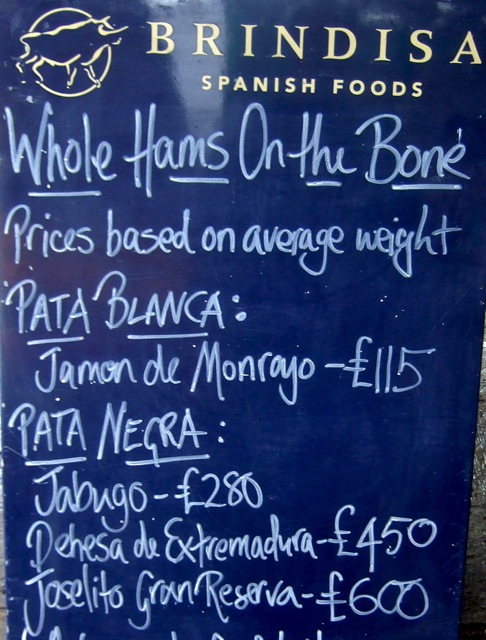 BRINDISA
SPANISH FOODS
Whole Hams On the Bone
Prices based on average weight
PATA BLANCA:
Jamon de Monroyo - £115
PATA NEGRA:
Jabugo - £280
Dehesa de Extremadura - £450
Joselito Gran Reserva - £600